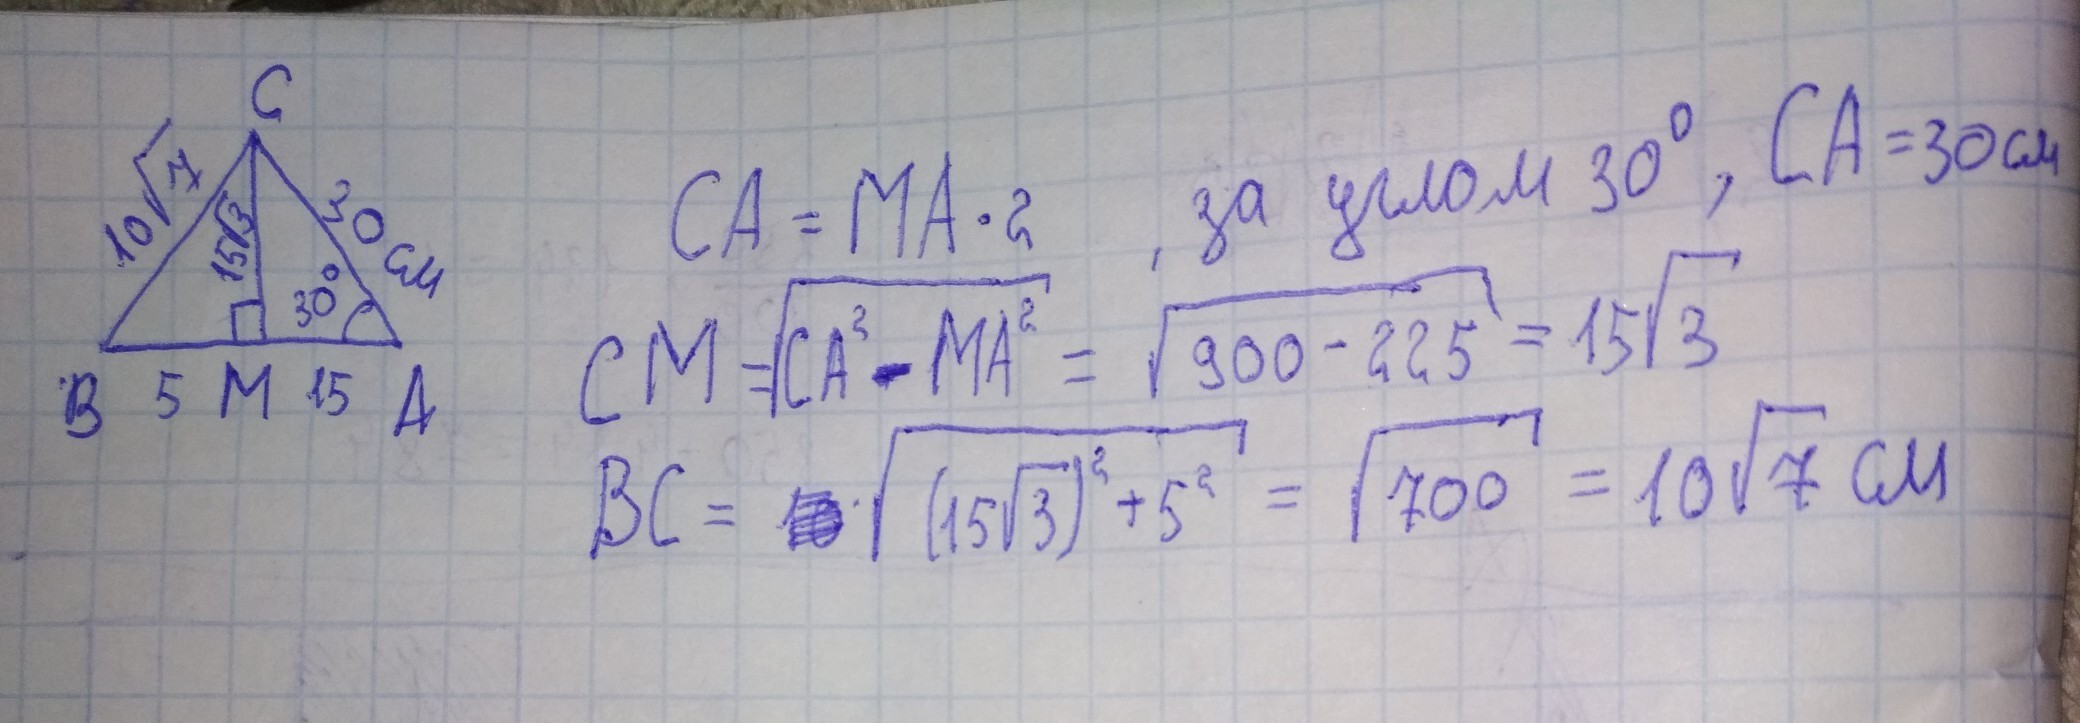 C
10√7
15√3
30 см
30°
B 5 M 15 A
CA = MA · 2 , за углом 30°, CA = 30 см
CM = √CA² - MA² = √900 - 225 = 15√3
BC = √(15√3)² + 5² = √700 = 10√7 см